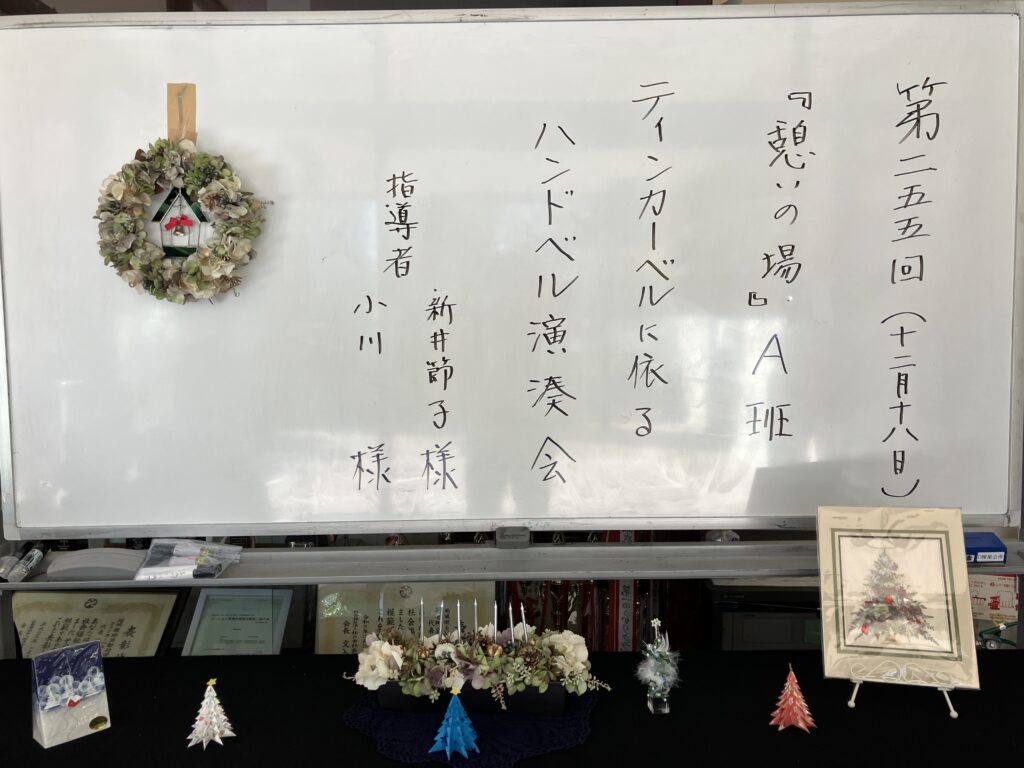 第二五五回(十二月十八日)
『憩いの場』A班
ティンカーベルに依る
ハンドベル演湊会
指導者
新井節子 様
小川 様
表彰